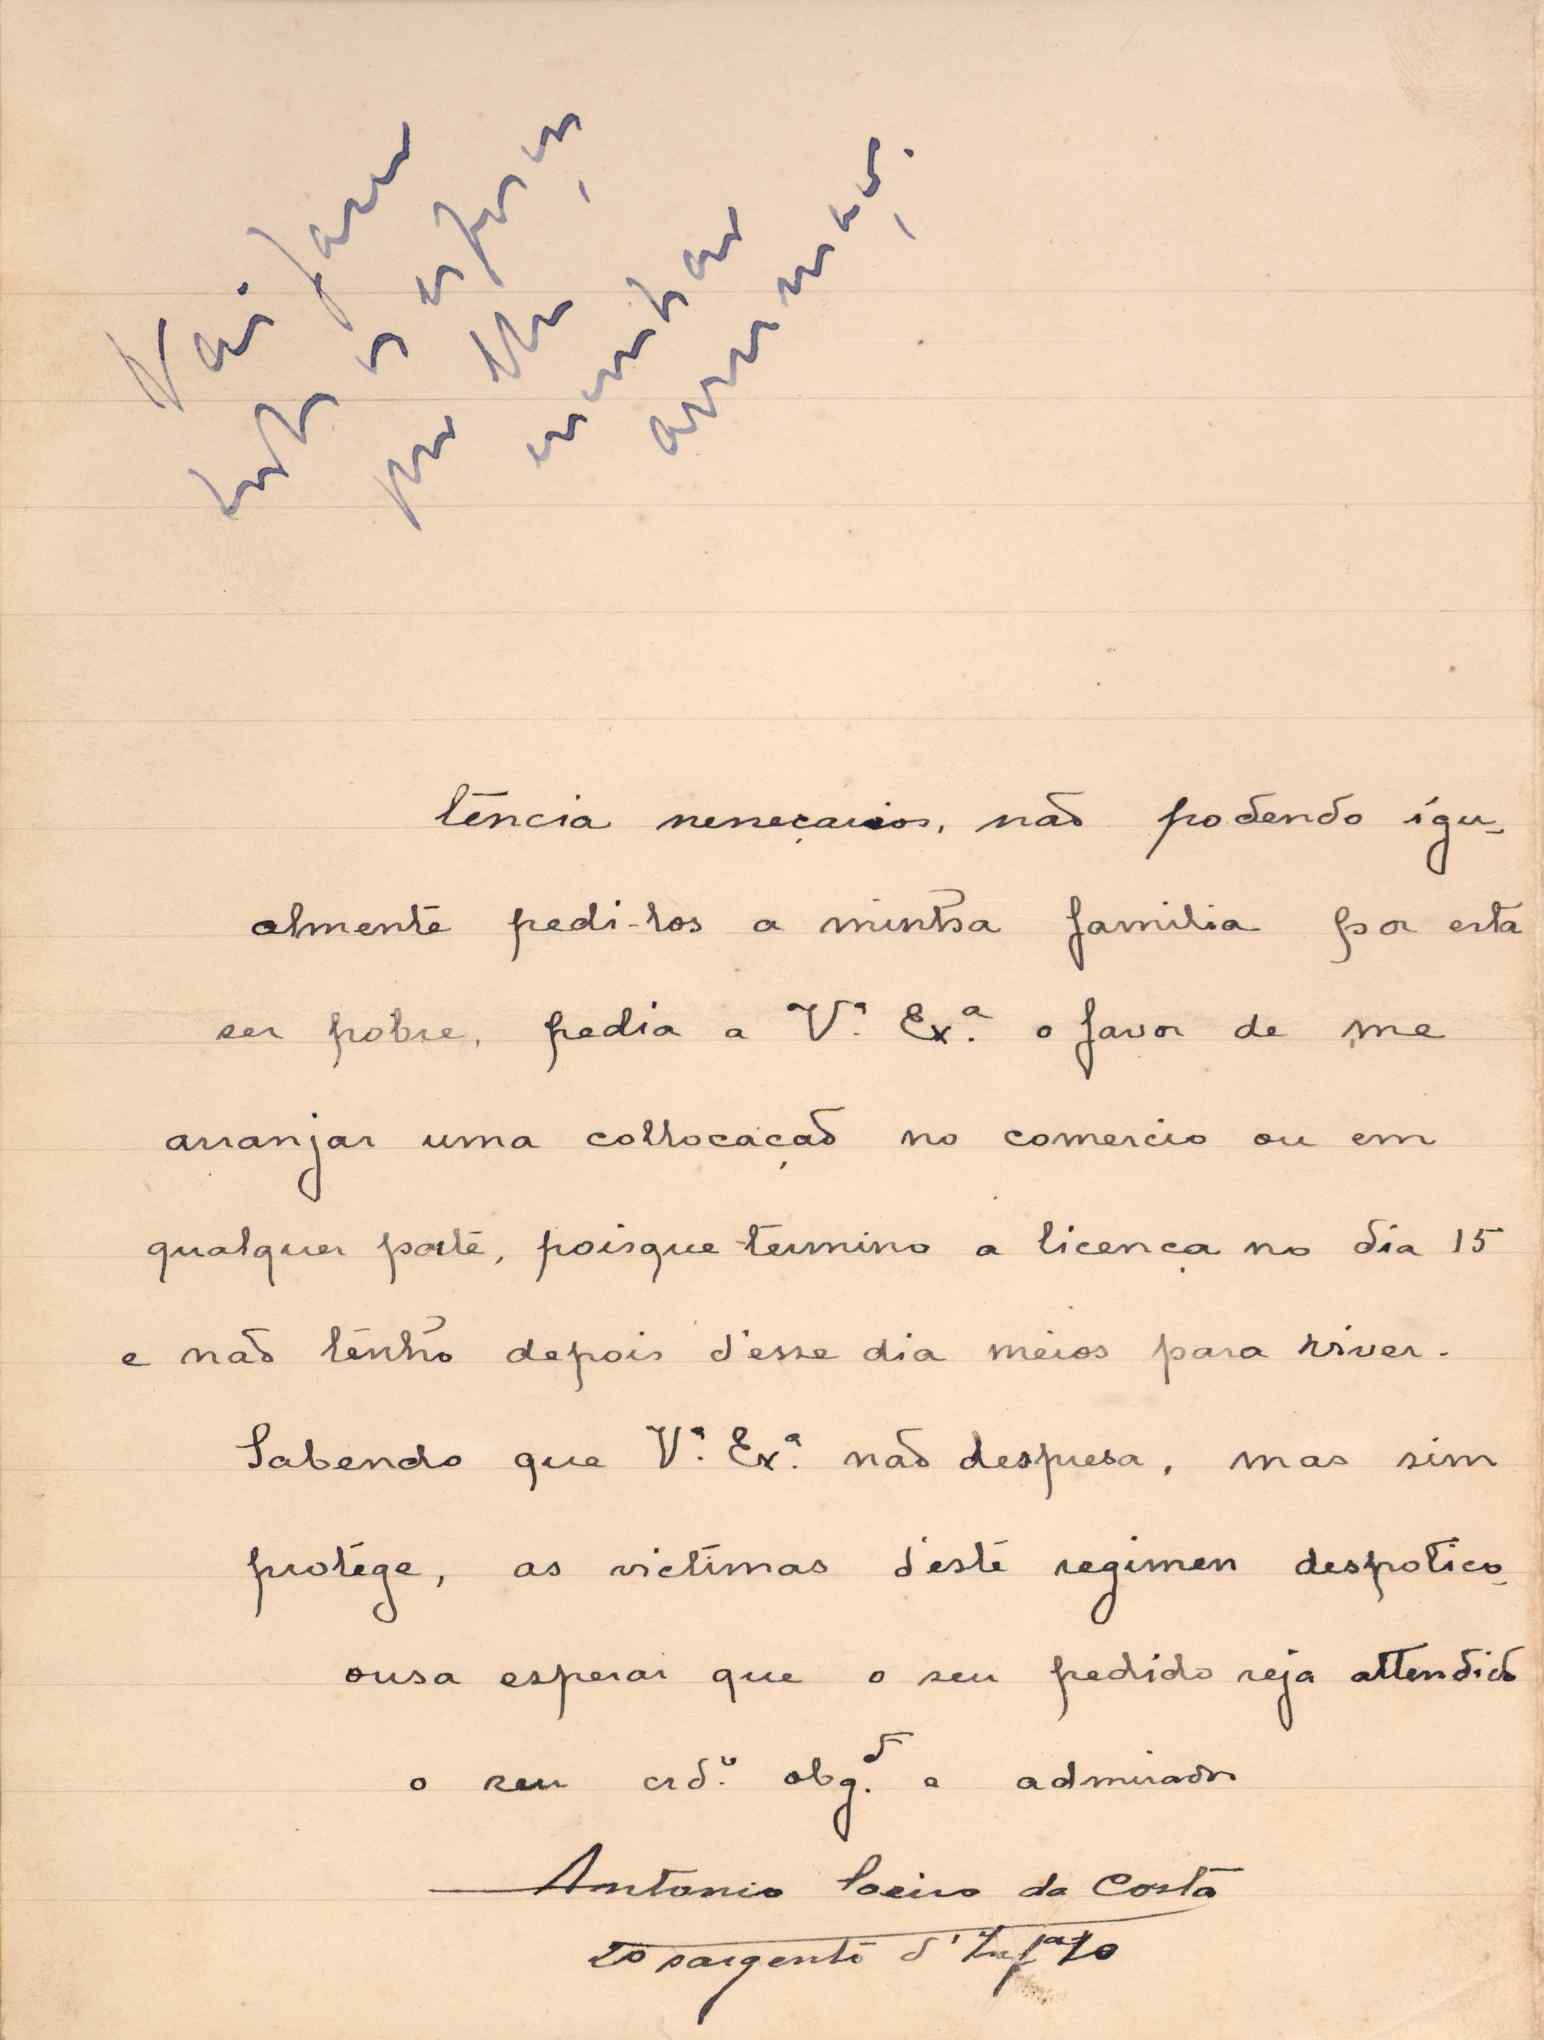 Vai fazer
todos os esforços
por lhe
encontrar
arrumação.
tencia neneçarios, não podendo igu-
almente pedi-los a minha familia por esta
ser pobre, pedia a Vª. Exª. o favor de me
arranjar uma collocação no comercio ou em
qualquer parte, poisque termino a licença no dia 15
e não tenho depois d'esse dia meios para viver.
Sabendo que Vª. Exª. não despresa, mas sim
protége, as victimas d'este regimen despotico
ousa esperar que o seu pedido seja attendido
o seu crdº. obgdº. e admirador
Antonio Soeiro da Costa
2º sargento d'Infª